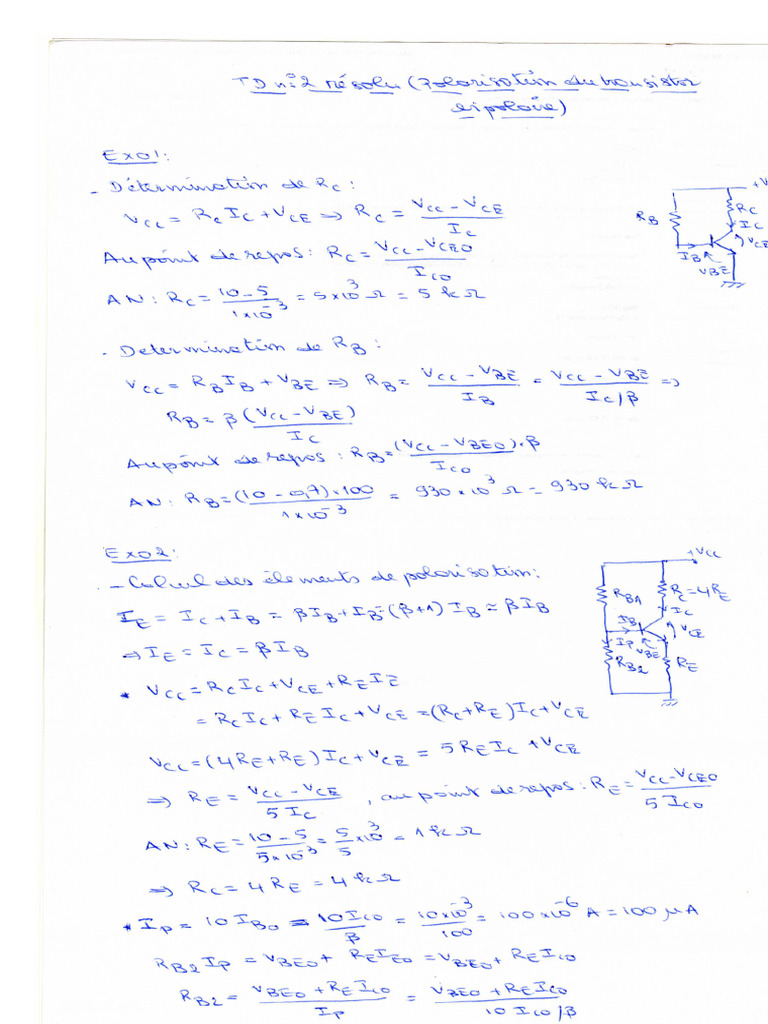 TD n°2 résolu (Polarisation du transistor
bipolaire)
Exo1:
- Détermination de Rc:
Vcc = RcIc + VCE ⇒ Rc = (Vcc - VCE)/Ic
Au point de repos: Rc = (Vcc - VCEO)/Ico
AN: Rc = (10-5)/(1×10⁻³) = 5×10³ Ω = 5 kΩ
+V
RB
Rc
Ic
IB
VCE
VBE
- Determination de RB:
Vcc = RBIB + VBE ⇒ RB = (Vcc - VBE)/IB = (Vcc - VBE)/(Ic/β) ⇒
RB = β (Vcc - VBE)/Ic
Au point de repos: RB = (Vcc - VBEO)·β/Ico
AN: RB = (10 - 0,7)×100/(1×10⁻³) = 930×10³ Ω = 930 kΩ
Exo2:
- Calcul des éléments de polarisation:
+Vcc
RB1
Rc=4RE
Ic
IB
VCE
IP
VBE
RB2
RE
IE = Ic + IB = βIB + IB = (β+1) IB ≃ βIB
⇒ IE = Ic = βIB
* Vcc = RcIc + VCE + REIE
= RcIc + REIc + VCE = (Rc+RE)Ic + VCE
Vcc = (4RE+RE)Ic + VCE = 5REIc + VCE
⇒ RE = (Vcc - VCE)/(5Ic), au point de repos: RE = (Vcc - VCEO)/(5Ico)
AN: RE = (10-5)/(5×10⁻³) = 5/5 ×10³ = 1 kΩ
⇒ Rc = 4RE = 4 kΩ
* IP = 10IBo = 10Ico/β = (10×10⁻³)/100 = 100×10⁻⁶ A = 100 μA
RB2IP = VBEO + REIEO = VBEO + REIco
RB2 = (VBEO + REIco)/IP = (VBEO + REIco)/(10Ico/β)